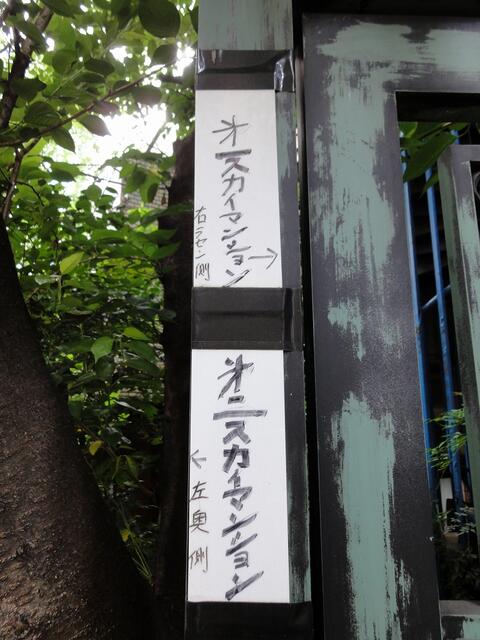 㐧一スカイマンション
右ラセン側 →
㐧二スカイマンション
← 左奥側